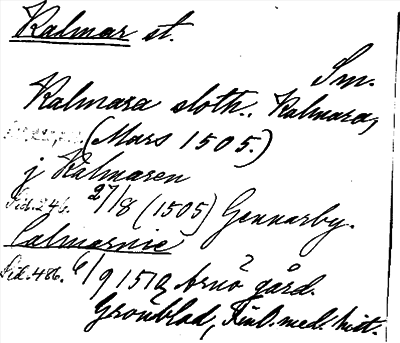 Kalmar st.
Sm.
Kalmara sloth.. Kalmara,
(Mars 1505.)
j Kalmaren
Sid. 246. 27/8 (1505) Gennarby.
Calmarnie
Sid. 486. 6/9 1512 Arnö gård.
Grönblad, Finl. med. hist.